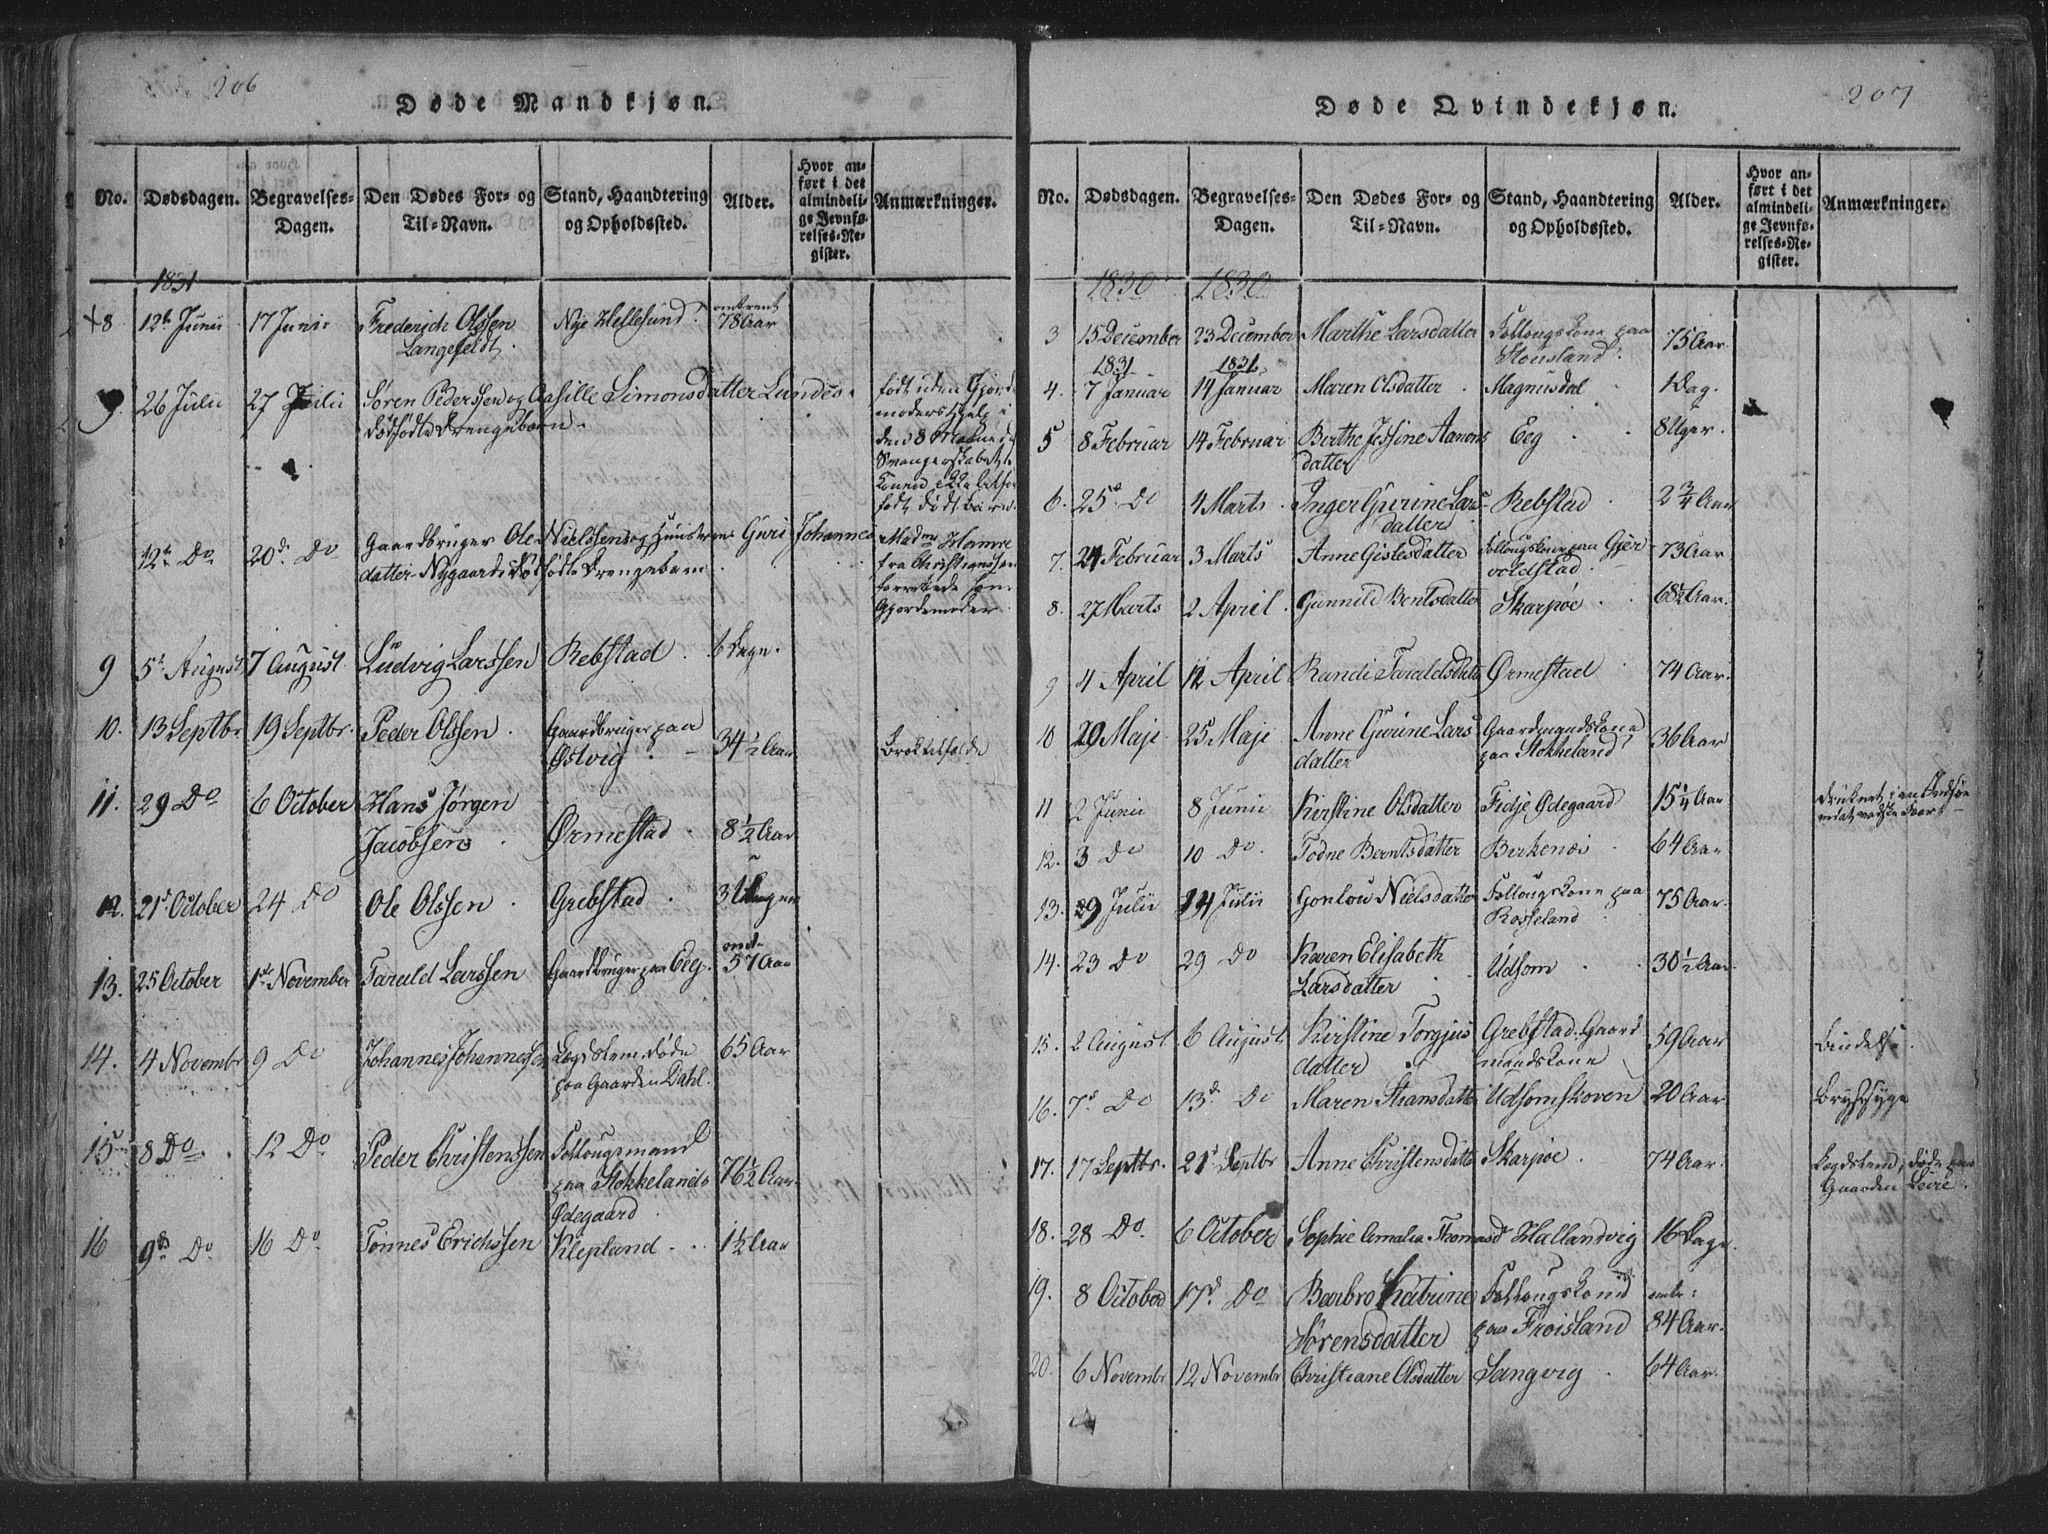 206
Døde Mandkjøn.
No. Dødsdagen. Begravelses-Dagen. Den Dødes For- og Til-Navn. Stand, Haandtering og Opholdssted. Alder. Hvor anført i det almindelige Jevnførelses-Register. Anmærkninger.
1831
8 12te Junii 17 Junii Frederich Olssen Nye Hellesund. omtrent 78 Aar
Langefeldt.
9. 26 Julii 27 Julii Søren Pedersen og Aasille Simonsdatter Lundes
dødfødte Drengebarn
født uden Gjorde
moders Hjelp i
den 8 Maaned
Svangerskabet
født dødt barn.
12te Do 20de Do Gaardbruger Ole Nielssens og Huustrues Guri Johannes
datter Nygaards dødfødte Drengebarn
Madme Hamre
fra Christianssand
forrettede som
Gjordemoder.
9 5te August 7 August Ludvig Larssen Rebstad 6 Dage.
10. 13 Septbr 19 Septbr. Peder Olssen. Gaardbruger paa
Østvig. 34½ Aar
11. 29 Do 6 October Hans Jørgen
Jacobsen. Ørmestad. 8½ Aar
12. 21de October 24 Do Ole Olssen. Grebstad. 3 Uger
13. 25 October 1ste November Tarald Larssen Gaardbruger paa Eeg. omt. 57 Aar
14. 4 Novembr 9 Do Johannes Johannessen Lægdslem, døde
paa Gaarden Dahl. 65 Aar
15 8 Do. 12 Do Peder Christenssen Follougsmand
paa Stokkelands
Ødegaard. 76½ Aar
16 9de Do 16 Do Tønnes Erichssen Klepland 1½ Aar
207
Døde Qvindekjøn.
No. Dødsdagen. Begravelses-Dagen. Den Dødes For- og Til-Navn. Stand, Haandtering og Opholdssted. Alder. Hvor anført i det almindelige Jevnførelses-Register. Anmærkninger.
1830 1830
3 15 December 23 December Marthe Larsdatter Follougskone paa
Stousland. 75 Aar.
1831 1831
4. 7 Januar 14 Januar Maren Olsdatter Magnusdal 1 Dag.
5 8 Februar 14 Februar Berthe Jessine Aanons
datter Eeg 8 Uger.
6. 25de Do 4 Marts Inger Gurine Lars
datter Rebstad 2¾ Aar
7. 24 Februar 3 Marts Anne Gislesdatter Follougskone paa Gjer
voldstad. 73 Aar
8. 27 Marts 2 April Gunnild Berntsdatter Skarpøe 68½ Aar.
9 4 April 12 April Randi Taraldsdatter Ørmestad 74 Aar.
10 20 Maji 25 Maji Anne Gurine Lars
datter Gaardmandskone
paa Stokkeland 36 Aar
11 2 Junii 8 Junii Kirstine Olsdatter Fidje Ødegaard 15¼ Aar
12. 3 Do 10 Do Todne Berntsdatter Birkenes 64 Aar
13. 9 Julii 14 Julii Gonlou Nielsdatter Follougskone paa
Rosseland 75 Aar.
14. 23 Do 29 Do Karen Elisabeth
Larsdatter Udsom 30½ Aar.
15. 2 August 6 August Kirstine Torgius
datter Grebstad. Gaard
mandskone 59 Aar
16. 7de Do 13de Do Maren Hansdatter Udsomskoven 20 Aar Brystsyge
17. 17 Septbr. 21de Septbr Anne Christensdatter Skarpøe. 74 Aar. Lægdslem, døde paa
Gaarden
18. 28 Do 6 October Sophie Amalia Thomasd Hallandvig 16 Dage.
19. 8 October 17de Do Barbro Katrine Follougskone omtr:
Sørensdatter paa Frøisland 84 Aar.
20. 6 Novembr 12 Novembr Christiane Olsdatter Langvig 64 Aar.